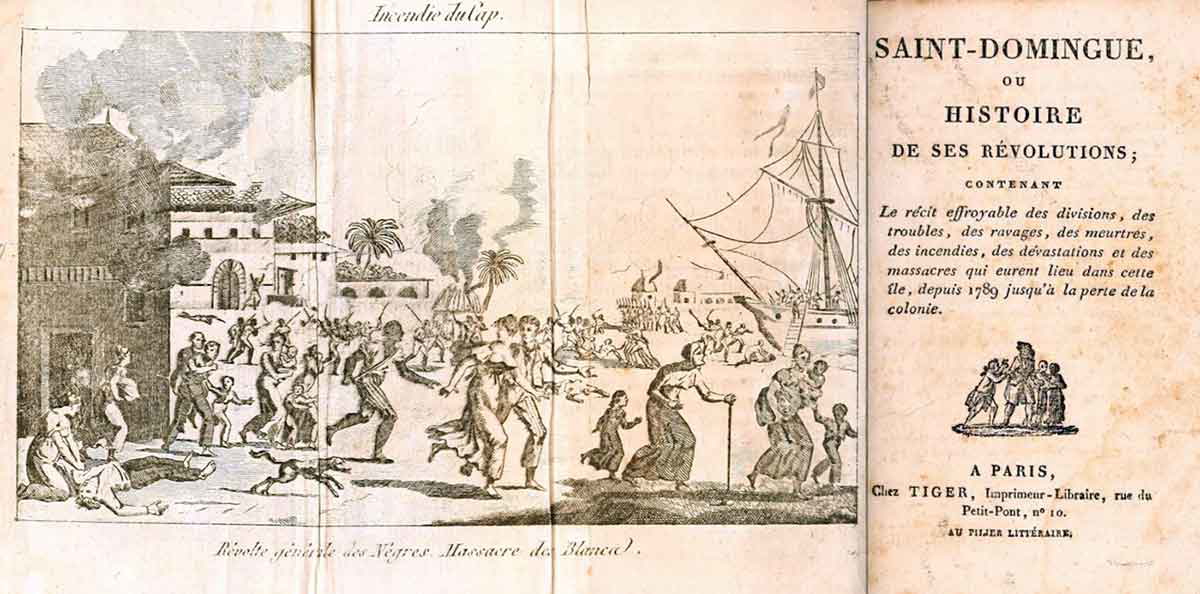 Incendie du Cap.
Révolte générale des Nègres. Massacre des Blancs.
SAINT-DOMINGUE,
OU
HISTOIRE
DE SES RÉVOLUTIONS;
CONTENANT
Le récit effroyable des divisions, des
troubles, des ravages, des meurtres,
des incendies, des dévastations et des
massacres qui eurent lieu dans cette
île, depuis 1789 jusqu'à la perte de la
colonie.
A PARIS,
Chez TIGER, Imprimeur-Libraire, rue du
Petit-Pont, nº 10.
AU PILIER LITTÉRAIRE.